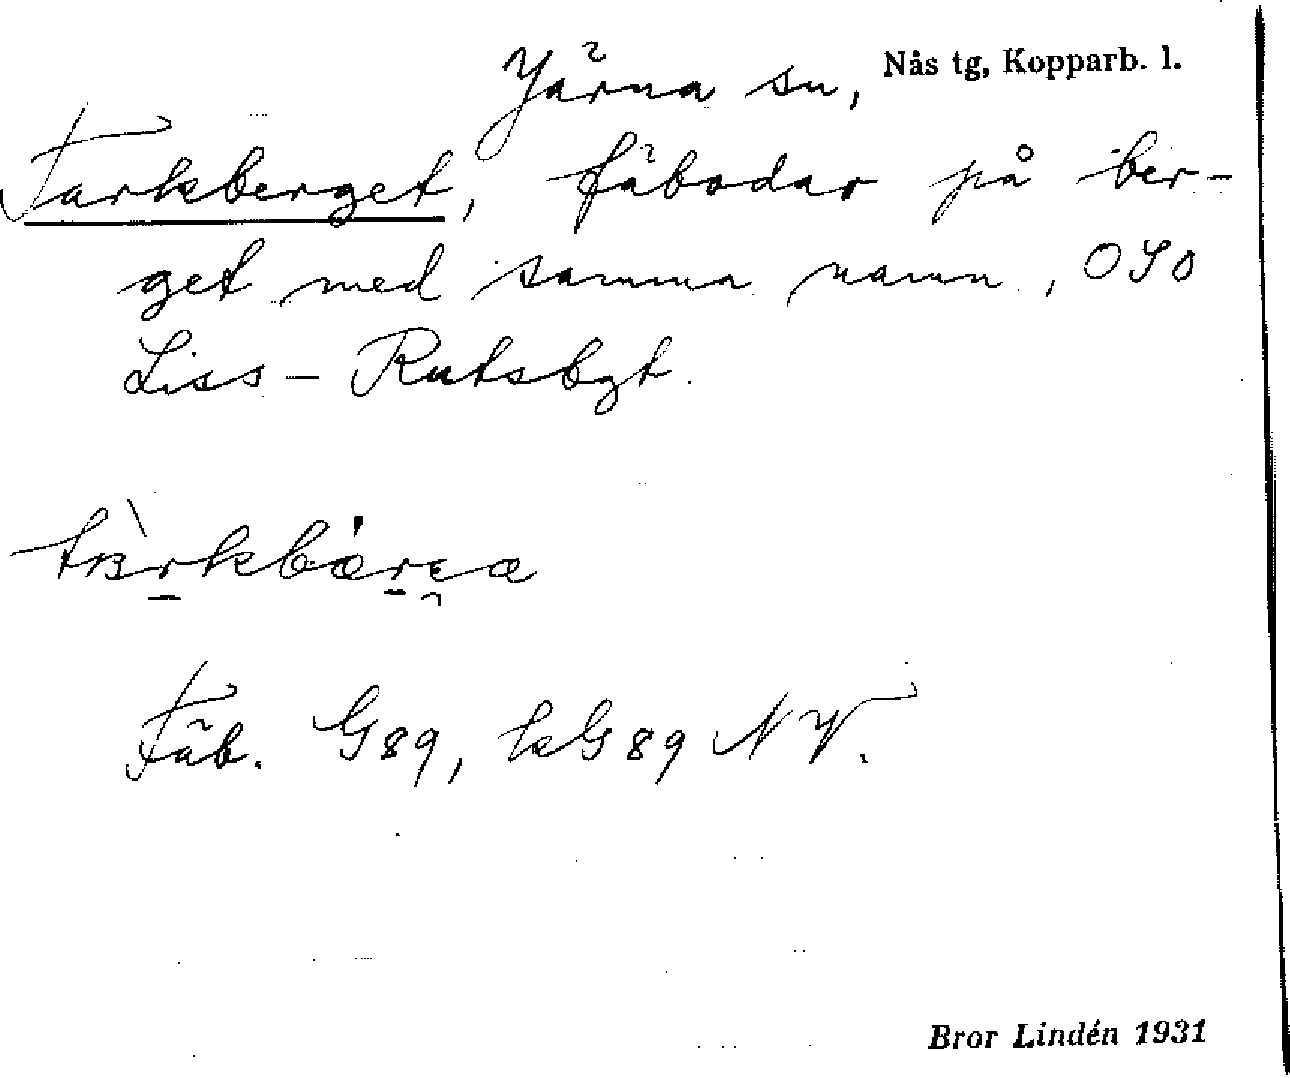 Järna sn, Nås tg, Kopparb. l.
Tarkberget, fäbodar på ber-
get med samma namn, OSO
Liss-Rutsbgt.
Fäb. G89, kG89 NV.
Bror Lindén 1931